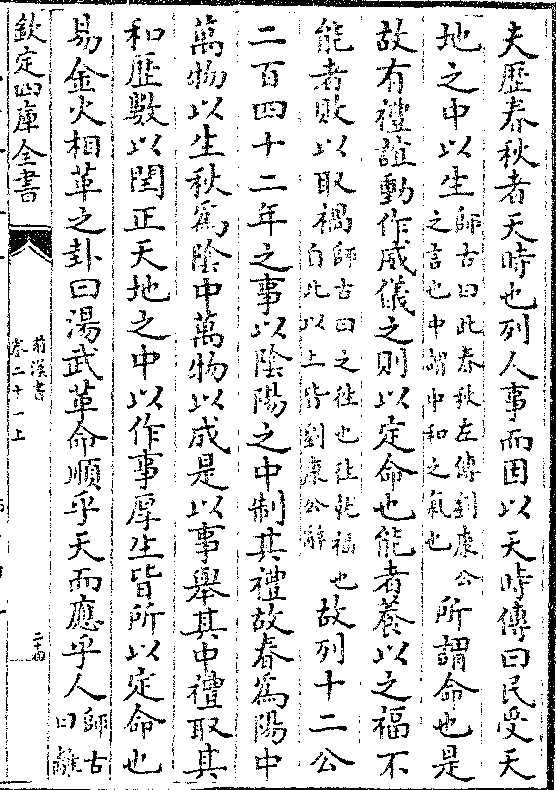 夫歴春秋者天時也列人事而因以天時傳曰民受天
地之中以生師古曰此春秋左傳劉康公之言也中謂中和之氣也所謂命也是
故有禮誼動作威儀之則以定命也能者養以之福不
能者敗以取禍師古曰之往也往就福也自此以上皆劉康公辭故列十二公
二百四十二年之事以陰陽之中制其禮故春為陽中
萬物以生秋為陰中萬物以成是以事舉其中禮取其
和歴數以閏正天地之中以作事厚生皆所以定命也
易金火相革之卦曰湯武革命順乎天而應乎人師古曰離
欽定四庫全書
前漢書
卷二十一上
二十四